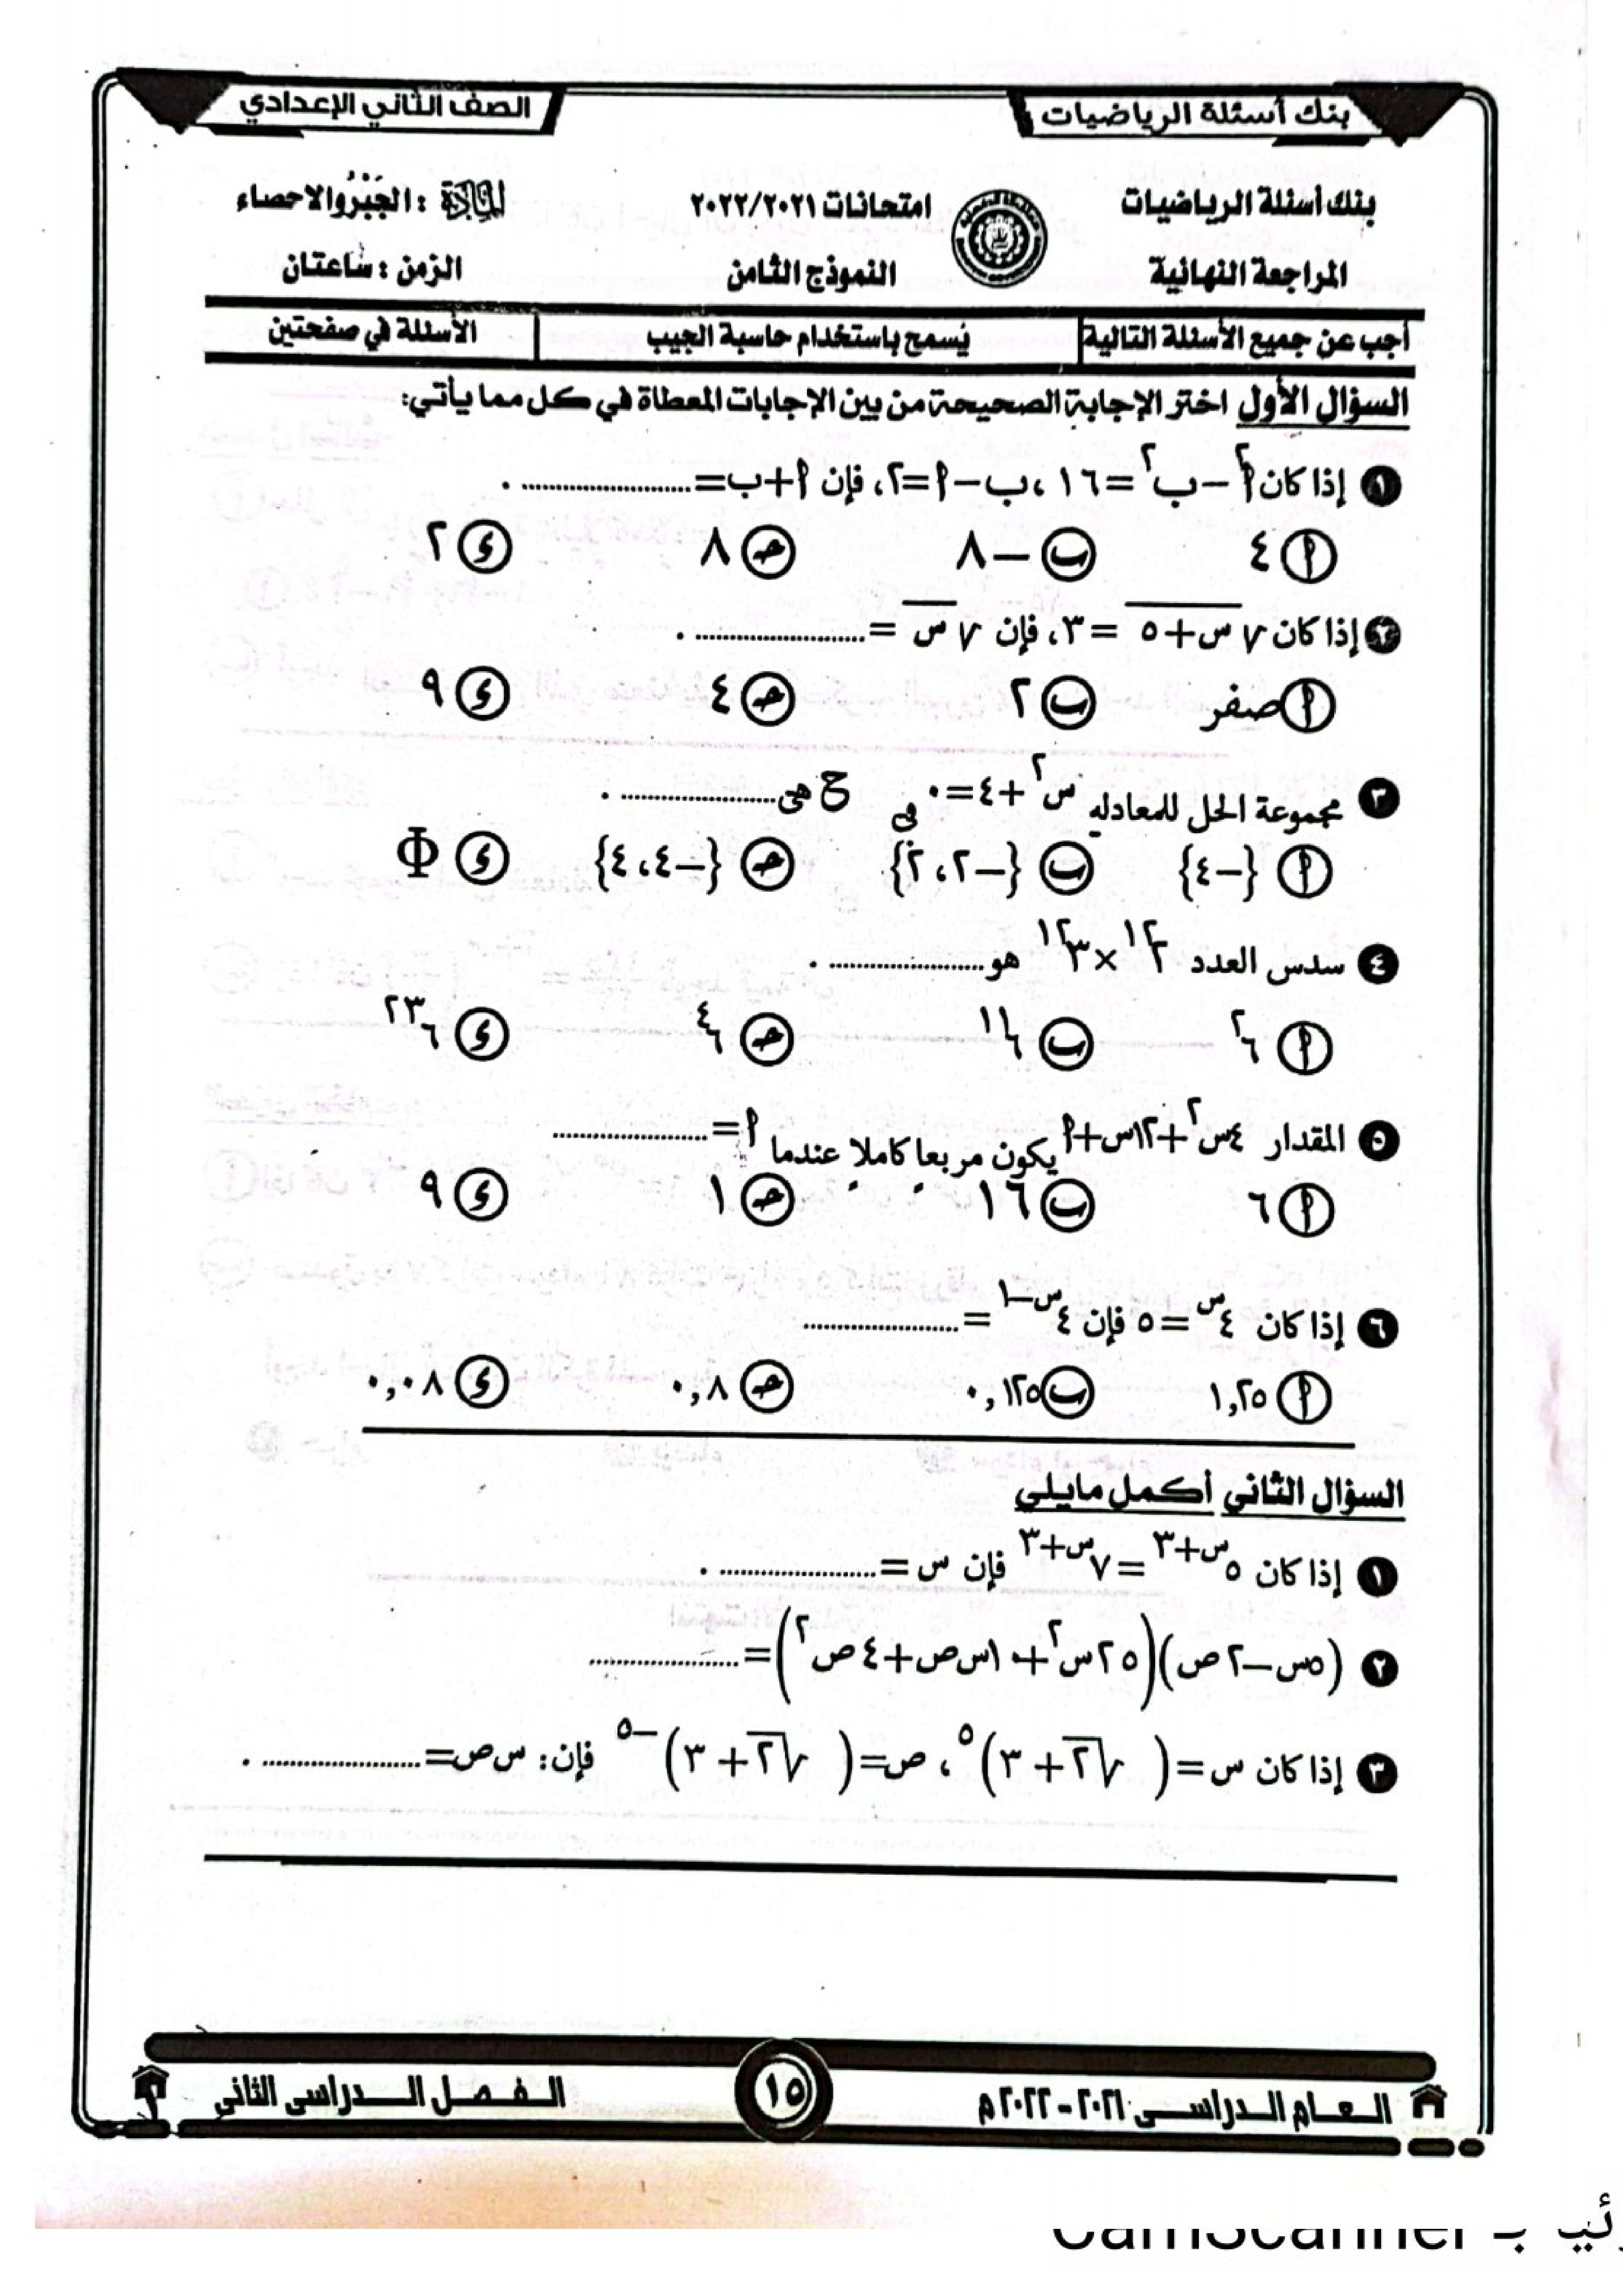 بنك أسئلة الرياضيات الصف الثاني الإعدادي
بنك أسئلة الرياضيات امتحانات ٢٠٢٢/٢٠٢١ المادة : الجَبْرُ والاحصاء
المراجعة النهائية النموذج الثامن الزمن : ساعتان
أجب عن جميع الأسئلة التالية يُسمح باستخدام حاسبة الجيب الأسئلة في صفحتين
السؤال الأول اختر الإجابة الصحيحة من بين الإجابات المعطاة في كل مما يأتي:
١ إذا كان أ² − ب² = ١٦ ، ب − أ = ٢، فإن أ + ب = .................... .
أ ٤ ب −٨ ج ٨ د ٢
٢ إذا كان √(س + ٥) = ٣، فإن √س = .................... .
أ صفر ب ٢ ج ٤ د ٩
٣ مجموعة الحل للمعادله س² + ٤ = ٠ في ح هى .................... .
أ {−٤} ب {−٢، ٢} ج {−٤، ٤} د Φ
٤ سدس العدد ٢¹² × ٣¹² هو .................... .
أ ٦² ب ٦¹¹ ج ٦⁴ د ٦²³
٥ المقدار ٤س² + ١٢س + أ يكون مربعا كاملا عندما أ = ....................
أ ٦ ب ١٦ ج ١ د ٩
٦ إذا كان ٤^س = ٥ فإن ٤^(س−١) = ....................
أ ١,٢٥ ب ٠,١٢٥ ج ٠,٨ د ٠,٠٨
السؤال الثاني أكمل مايلي
١ إذا كان ٥^(س+٣) = ٧^(س+٣) فإن س = .................... .
٢ (٥س − ٢ص)(٢٥س² + ١٠س ص + ٤ص²) = ....................
٣ إذا كان س = (√٢ + ٣)⁵ ، ص = (√٢ + ٣)⁻⁵ فإن: س ص = .................... .
العام الدراسى ٢٠٢١ - ٢٠٢٢م ١٥ الفصل الدراسى الثانى
CamScanner